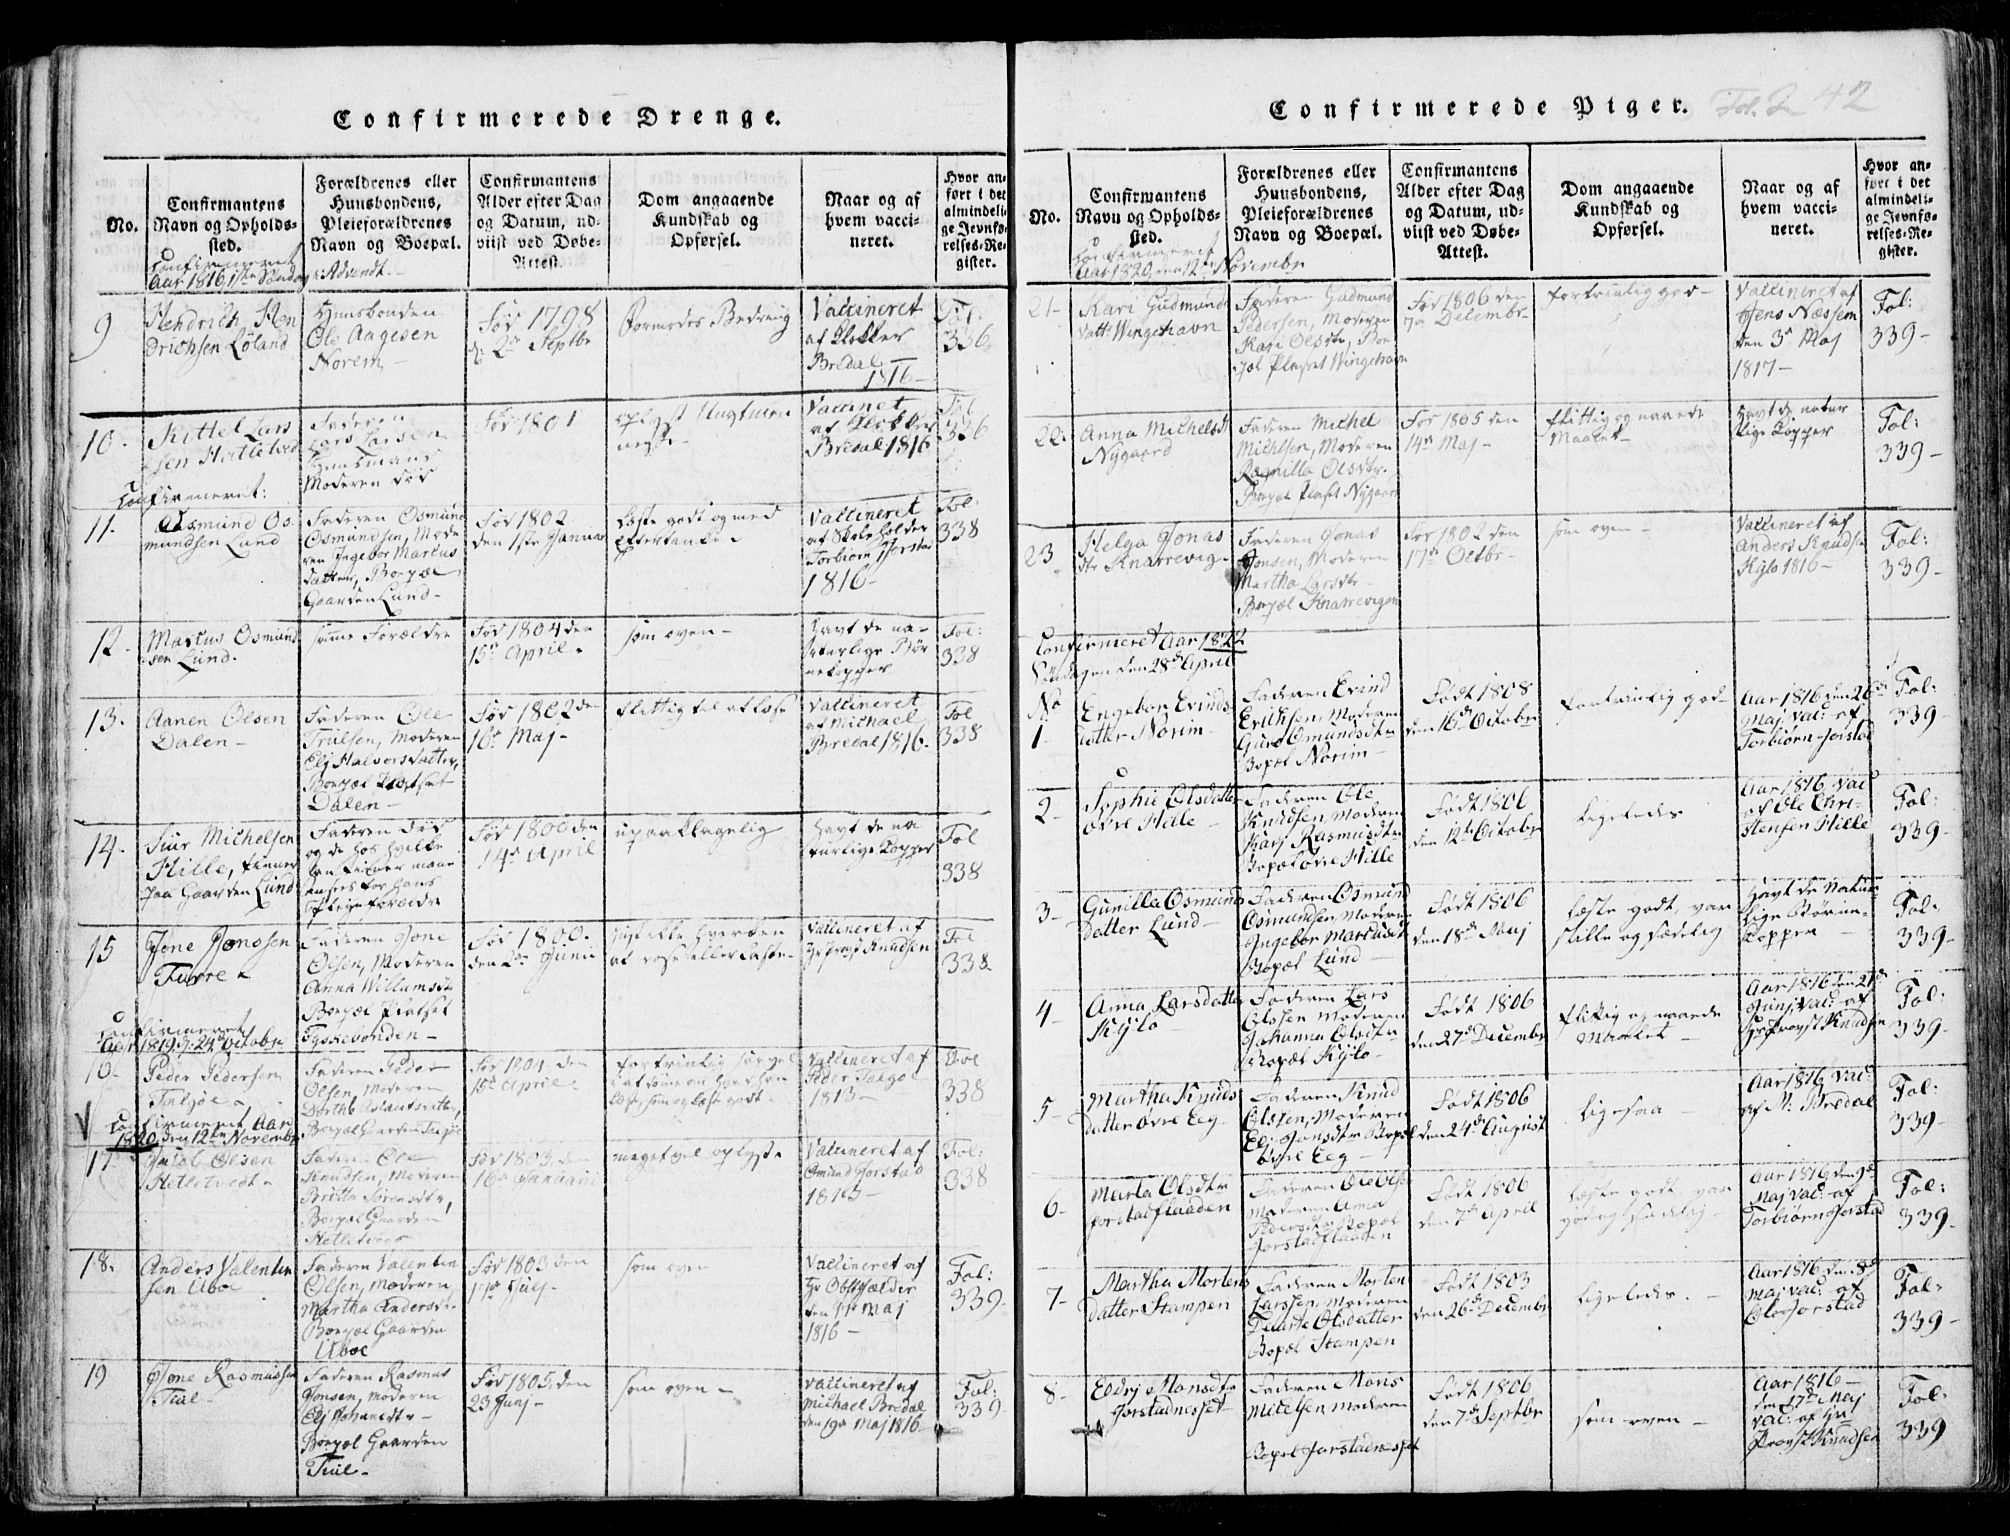 Confirmerede Drenge.
No.
Confirmantens
Navn og Opholds-
sted.
Forældrenes eller
Huusbondens,
Pleieforældrenes
Navn og Boepæl.
Confirmantens
Alder efter Dag
og Datum, ud-
viist ved Døbe-
Attest.
Dom angaaende
Kundskab og
Opførsel.
Naar og af
hvem vacci-
neret.
Hvor an-
ført i det
almindeli-
ge Jevnfø-
relses-Re-
gister.
Confirmeret
Aar 1816, 1ste Søndag i Advendt.
9
Hendrich Hen
drichsen Løland
Huusbonden
Ole Aagesen
Norem
Fød 1798
d: 2de Septbr
Vaccineret
af Klokker
Bredal
1816
Fol:
336
10.
Kittel Lars
sen Hetletved
Faderen
Lars Larsen
Huusmand
Moderen død
Fød 1801
Vaccineret
af Klokker
Bredal 1816
Fol
336
Confirmeret:
11.
Osmund Os-
mundsen Lund
Faderen Osmund
Osmundsen, Mode
ren Ingebor Marcus
datter, Boepæl
Gaarden Lund
Fød 1802
den 1ste Januar
læste godt og med
Eftertanke
Vaccineret
af Skoleholder
Torbiørn Jorstad
1816
Fol:
338
12.
Marcus Osmund
sen Lund.
samme Forældre
Fød 1804 den
15de April.
som oven
Havt de na-
turlige Bør
nekopper
Fol:
338
13.
Aanen Olsen
Dalen
Faderen Ole
Trulsen, Moderen
Elj Halvorsdatter,
Boepæl Pladset
Dalen
Fød 1802 de
16de Maj
flittig til at læse
Vaccineret
af Michael
Bredal 1816.
Fol
338
14.
Siur Michelsen
Hille, tienner
paa Gaarden Lund
Faderen død
og de hos hvilke
han tiener maae
ansees for hans
Pleieforældre
Fød 1800 den
14de April
upaaklagelig
Havt de na
turlige Kopper
Fol
338
15
Jone Jonssen
Furre
Faderen Jone
Olsen, Moderen
Anna Willumsdtr
Boepæl Pladset
Tyskebonden
Fød 1800.
den 2de Junii
just ikke hverken
at rose eller laste
Vaccineret af
Hr Provst Knudsen
Fol
338
Confirmeret
Aar 1819 d: 24de Octobr.
16
Peder Pedersen
Tulgøe
Faderen Peder
Olsen, Moderen
Dorthe Asdautsdatter,
Boepæl Gaarden Tulgøe
Fød 1804 den
15de April
Vaccineret af
Peder Talgøe
1813
Fol
338
Confirmeret Aar
1820 den 12te Novembr
17
Jacob Olsen
Hetletvedt
Faderen Ole
Knudsen, Moderen
Britta Sørensdtr,
Boepæl Gaarden
Hetletved
Fød 1803 den
16de Januarii
meget vel oplyst
Vaccineret af
Omund Jorstad
1815
Fol:
338
18.
Anders Valentin
sen Uboe
Faderen Valentin
Olsen, Moderen
Martha Andersdtr
Boepæl Gaarden
Uboe
Fød 1803 den
17de Julj
som oven
Vaccineret af
Hr Obstfælder
den 9de Maj
1816
Fol:
339
19
Jone Rasmussen
Tiul
Faderen Rasmus
Jonsen, Moderen
Elj Johansdtr
Boepæl Gaarden
Tiul
Fød 1805, den
23 Junj
som oven
Vaccineret af
Michael Bredal
den 19de Maj 1816
Fol:
339
Confirmerede Piger.
42
No.
Confirmantens
Navn og Opholds-
sted.
Forældrenes eller
Huusbondens,
Pleieforældrenes
Navn og Boepæl.
Confirmantens
Alder efter Dag
og Datum, ud-
viist ved Døbe-
Attest.
Dom angaaende
Kundskab og
Opførsel.
Naar og af
hvem vacci-
neret.
Hvor an-
ført i det
almindeli-
ge Jevnfø-
relses-Re-
gister.
Confirmeret
Aar 1820, den 12te Novembr
21
Kari Gudmunds
datt: Wingehavn
Faderen Gudmund
Pedersen, Moderen
Kari Olsdtr, Bo
pæl Pladset Wingehavn
Fød 1806 den
7de Decembr
fortrinlig god
Vaccineret af
Jens Næssem
den 3de Maj
1817
Fol:
339
22.
Anna Michelsdt
Nygaard
Faderen Michel
Michelsen, Moderen
Ragnilla Olsdtr.
Boepæl Pladset Nygaard
Fød 1805 den
14de Maj
flittig og naaede
Maalet
Havt de natur
lige Kopper
Fol:
339
23
Helga Jonas
dtr Knarrevig
Faderen Jonas
Jonsen, Moderen
Martha Larsdtr
Boepæl Knarrevigen
Fød 1802 den
17de Octbr
som oven
Vaccineret af
Anders Knuds
Kylo 1816
Fol:
339
Confirmeret Aar 1822
Søndagen den 28de April
No
1
Engebor Evinds
datter Norim
Faderen Evind
Erichsen, Moderen
Guro Omundsdtr
Bopæl Norim
Født 1808
den 16de Octobr
fortrinlig god
Aar 1816 den 26de
Maj vac: af
Torbiørn Jorstad
Fol:
339
2
Sophie Olsdatter
øvre Hille
Faderen Ole
Knudsen, Moderen
Karj Rasmusdtr
Bopæl øvre Hille
Født 1806
den 12te Octobr
ligeledes
Aar 1816 vac
af Ole Chri-
stensen Hille
Fol:
339
3
Gunilla Osmunds
datter Lund
Faderen Osmund
Osmundsen, Moderen
Ingebor Marcusdtr
Bopæl Lund
Født 1806
den 18de Maj
læste godt, var
stille og sædelig
Havt de Natur-
lige Børne-
kopper
Fol:
339
4
Anna Larsdatter
Kylo
Faderen Lars
Olsen Moderen
Johanna Olsdtr
Bopæl Kylo
Født 1806
den 27de December
flittig og naaede
Maalet
Aar 1816 den 21de
Junj vac: af
Hr Provst Knudsen
Fol:
339
5
Martha Knuds
datter Øvre Eeg
Faderen Knud
Olsen, Moderen
Eli Jonsdtr Bopæl
Øvre Eeg
Født 1806
den 24de August
ligesaa
Aar 1816 vac:
af M: Bredal
Fol:
339
6
Marta Olsdtr
Jorstadflaaden
Faderen Ole Olsen
Moderen Anna
Pedersdtr Bopæl
Jorstadflaaden
Født 1806
den 7de April
læste godt, var
god og sædelig
Aar 1816 den 9de
Maj vac: af
Torbiørn Jorstad
Fol:
339
7
Martha Mortens
datter Stampen
Faderen Morten
Larssen, Moderen
Olsdatter
Bopæl Stampen
Født 1803
den 26de Decembr
ligeledes.
Aar 1816 den 8de
Maj vac: af
Ole Jorstad
Fol:
339
8
Eddrj Monsdtr
Jorstadnesset
Faderen Mons
Mitelsen Moderen
Bopæl Jorstadnesset
Født 1806
den 7de Septbr
som oven
Aar 1816
den 17de Maj
vac: af Hr
Provst Knudsen
Fol:
339